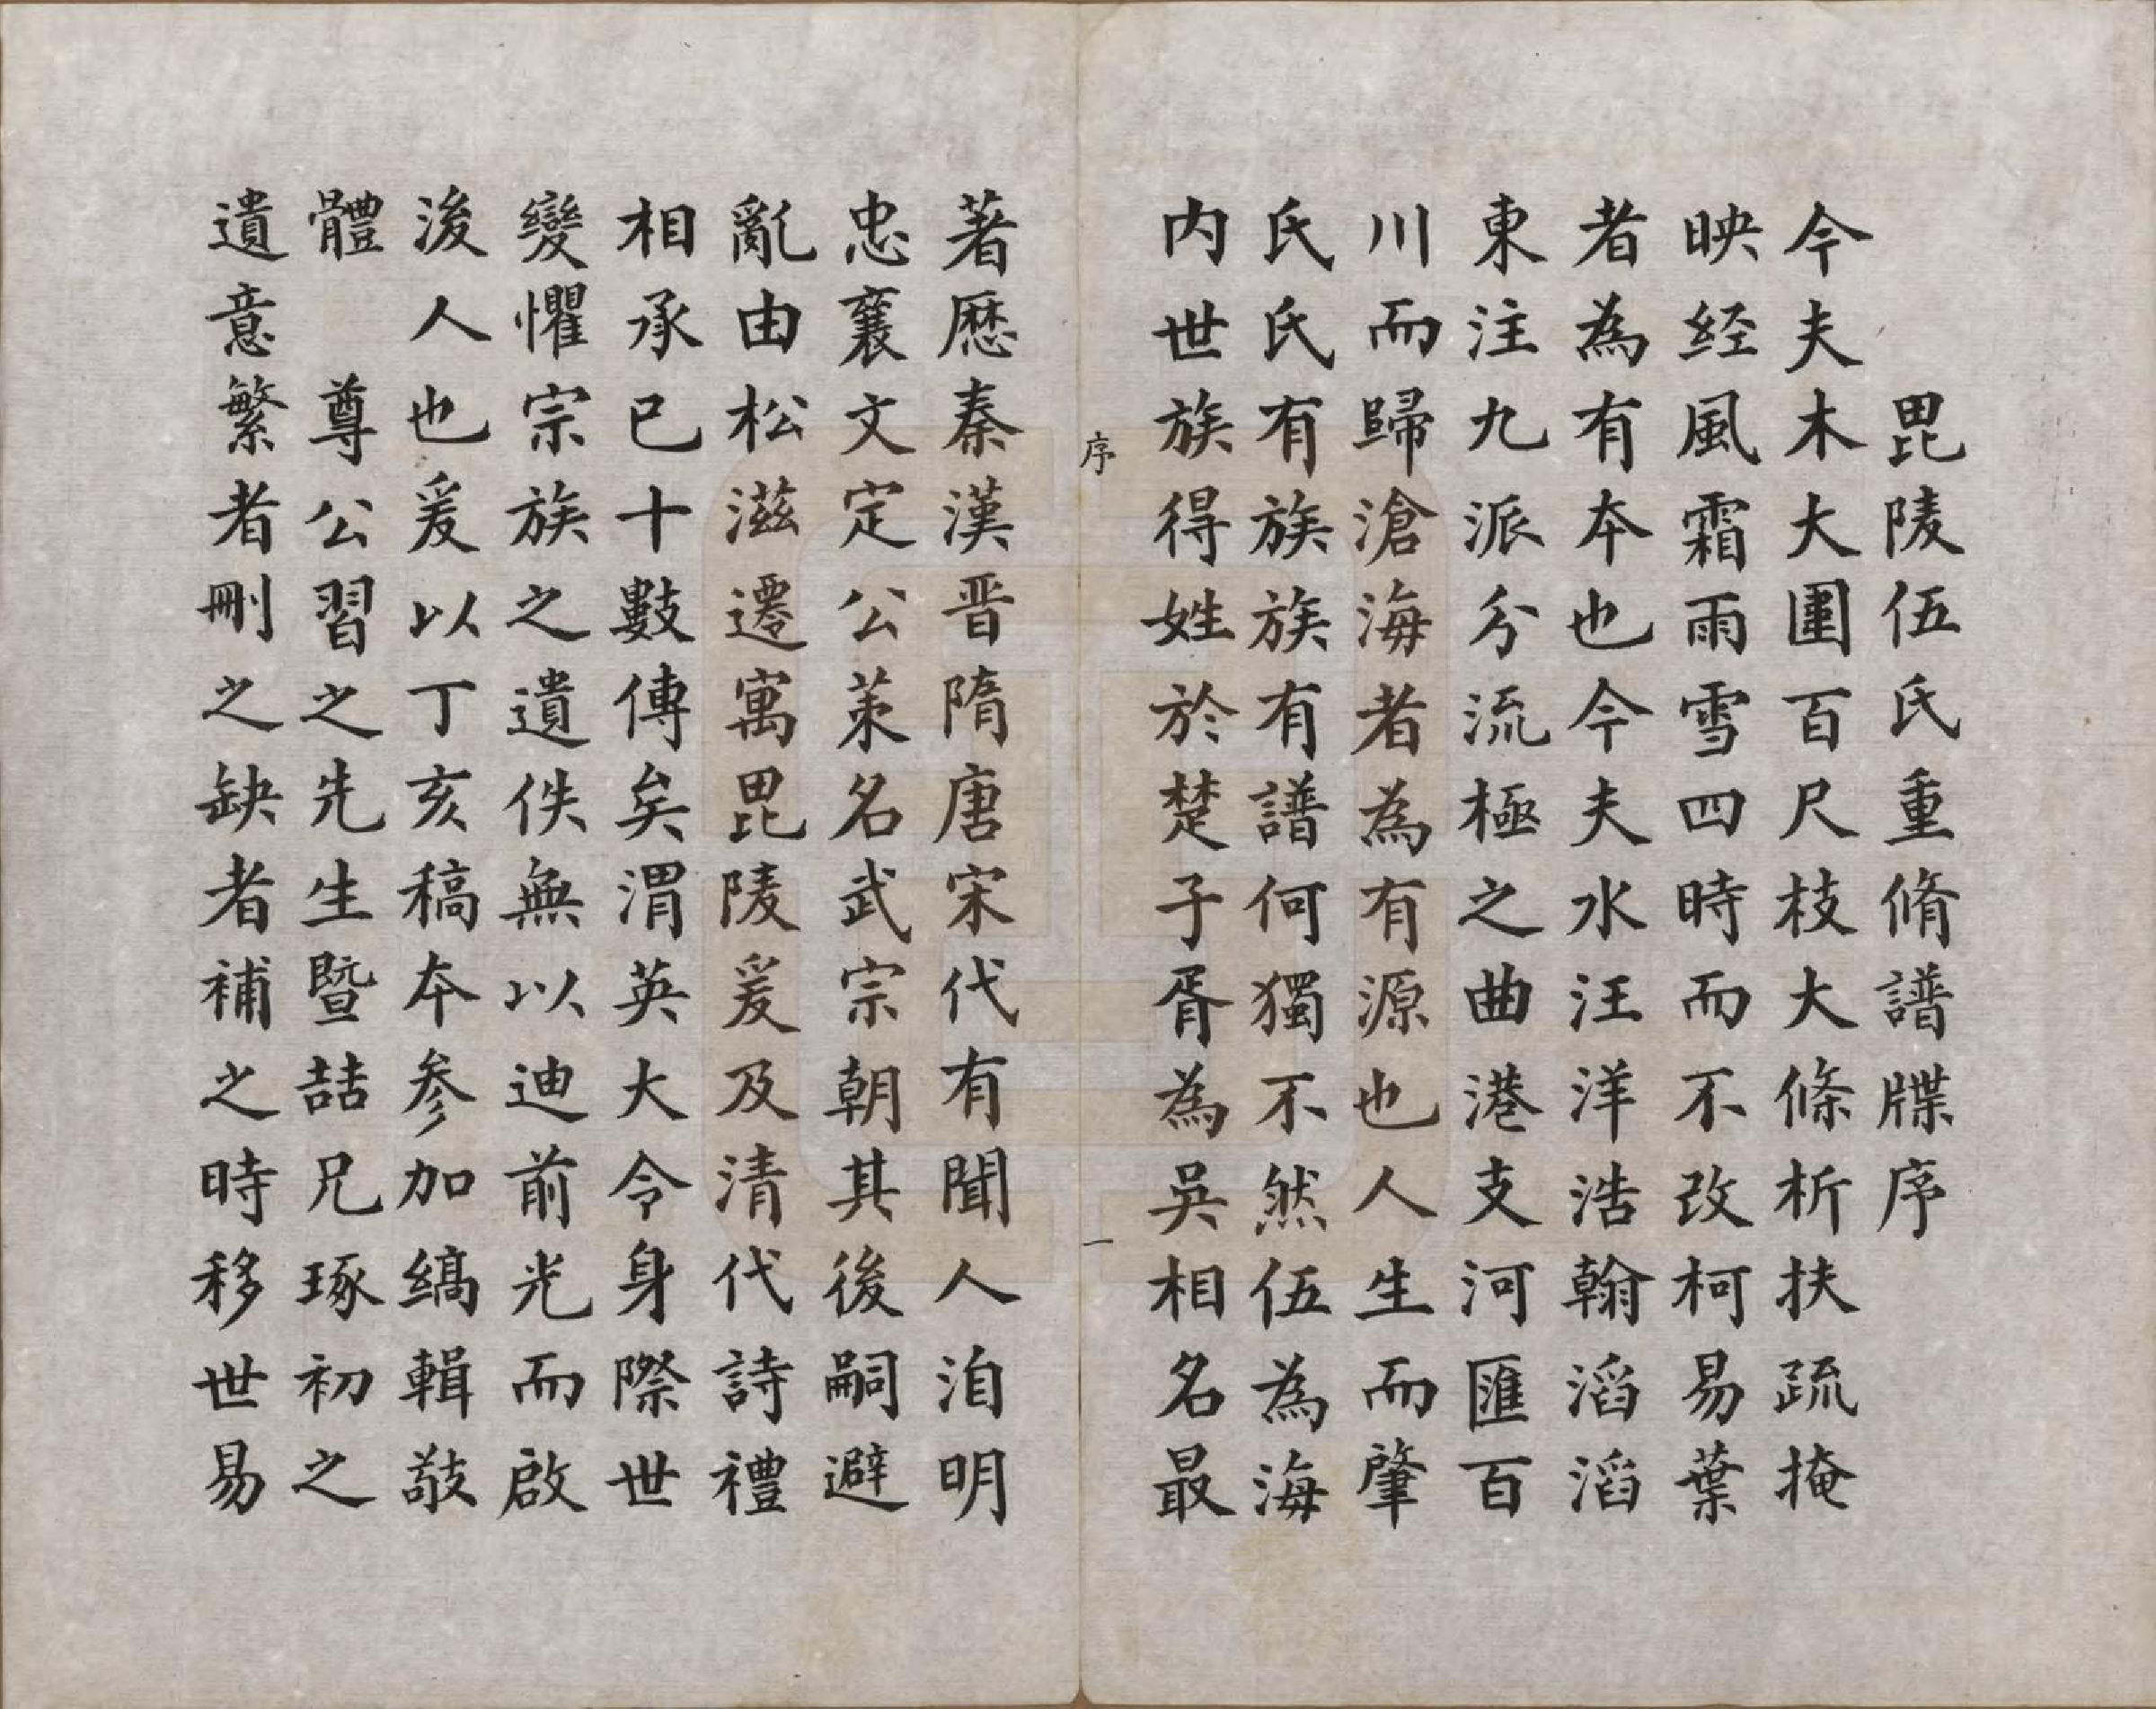 毘陵伍氏重脩譜牒序
今夫木大圍百尺枝大條析扶疏掩
映经風霜雨雪四時而不改柯易葉
者為有本也今夫水汪洋浩翰滔滔
東注九派分流極之曲港支河匯百
川而歸滄海者為有源也人生而肇
氏氏有族族有譜何獨不然伍為海
内世族得姓於楚子胥為吳相名最
序
一
著歷秦漢晋隋唐宋代有聞人洎明
忠襄文定公策名武宗朝其後嗣避
亂由松滋遷寓毘陵爰及清代詩禮
相承已十數傳矣渭英大令身際世
變懼宗族之遺佚無以迪前光而啟
後人也爰以丁亥稿本参加縞輯敬
體 尊公習之先生暨喆兄琢初之
遺意繁者刪之缺者補之時移世易